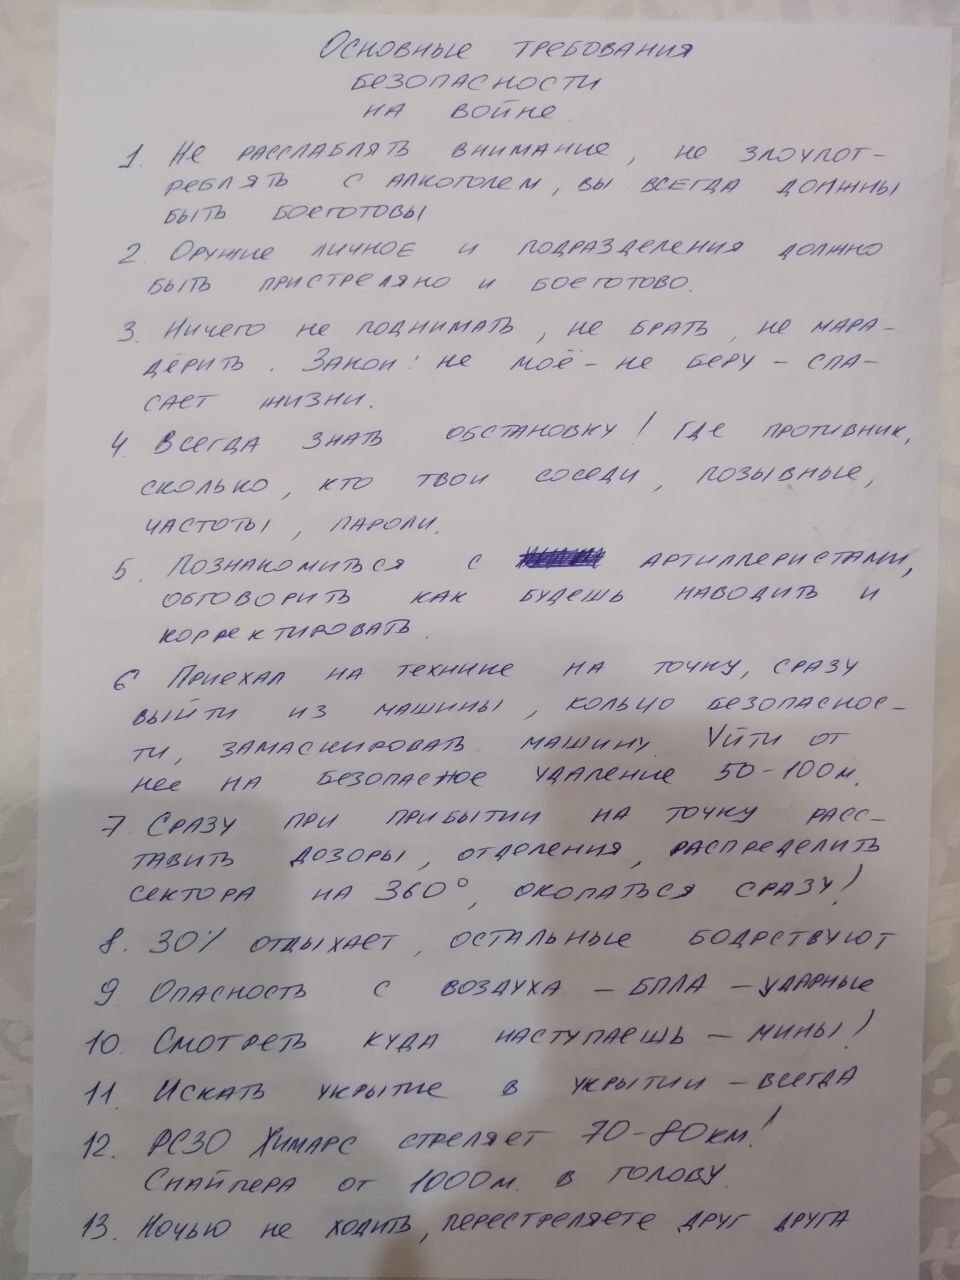 Основные требования
безопасности
на войне.
1. Не расслаблять внимание, не злоупот-
реблять с алкоголем, вы всегда должны
быть боеготовы
2. Оружие личное и подразделения должно
быть пристреляно и боеготово.
3. Ничего не поднимать, не брать, не мара-
дёрить. Закон: не моё - не беру - спа-
сает жизни.
4. Всегда знать обстановку! Где противник,
сколько, кто твои соседи, позывные,
частоты, пароли.
5. Познакомиться с артиллеристами,
обговорить как будешь наводить и
корректировать.
6 Приехал на технике на точку, сразу
выйти из машины, кольцо безопаснос-
ти, замаскировать машину. Уйти от
нее на безопасное удаление 50-100м.
7. Сразу при прибытии на точку расс-
тавить дозоры, отделения, распределить
сектора на 360°, окопаться сразу!
8. 30% отдыхает, остальные бодрствуют
9 Опасность с воздуха - БПЛА - ударные
10. Смотреть куда наступаешь - мины!
11. Искать укрытие в укрытии - всегда
12. РСЗО Химарс стреляет 70-80км!
Снайпера от 1000м. в голову.
13. Ночью не ходить, перестреляете друг друга